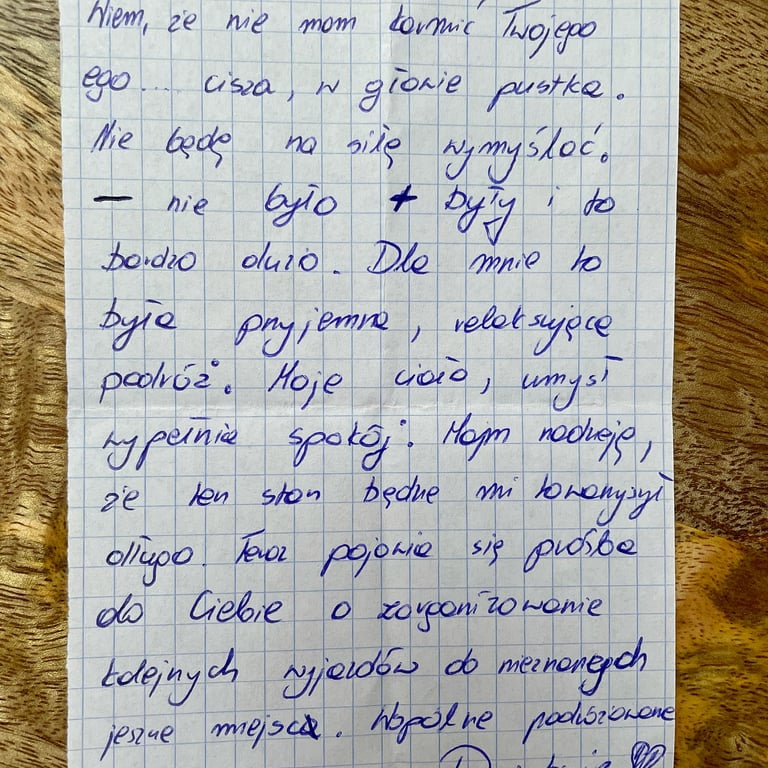 Wiem, że nie mam karmić Twojego
ego... cisza, w głowie pustka.
Nie będę na siłę wymyślać.
— nie było + były i to
bardzo dużo. Dla mnie to
była przyjemna, relaksująca
podróż. Moje ciało, umysł
wypełnia spokój. Mam nadzieję,
że ten stan będzie mi towarzyszył
długo. Teraz pojawia się prośba
do Ciebie o zorganizowanie
kolejnych wyjazdów do nieznanych
jeszcze miejsc. Wspólne podróżowanie